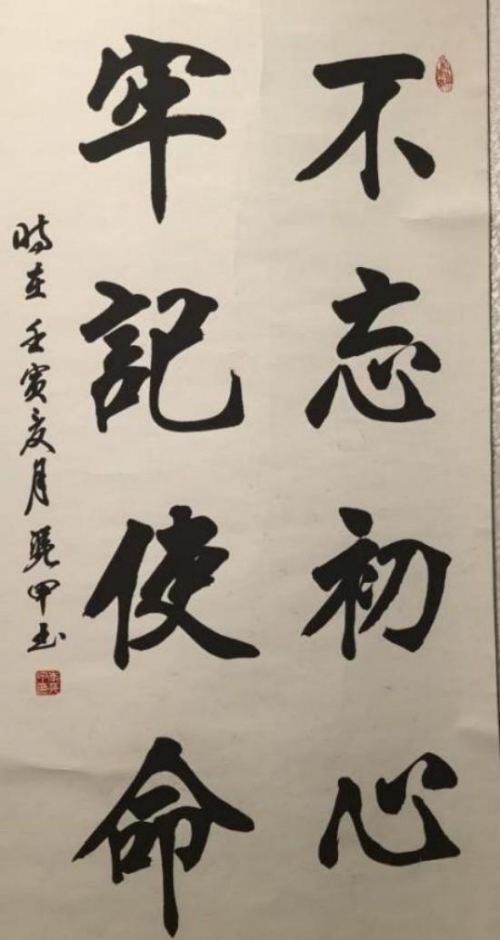 不忘初心
牢记使命
時在壬寅夏月 甲玉